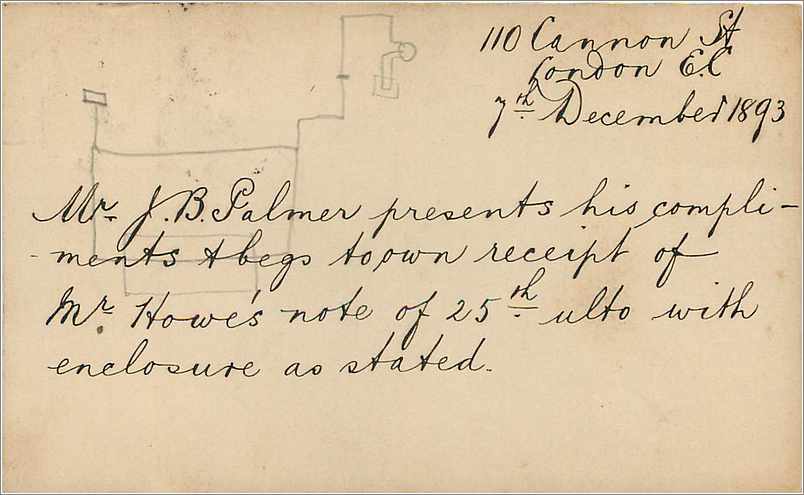 110 Cannon St
London E.C
7th December 1893
Mr. J. B. Palmer presents his compli-
-ments & begs to own receipt of
Mr. Howe's note of 25th ulto with
enclosure as stated.